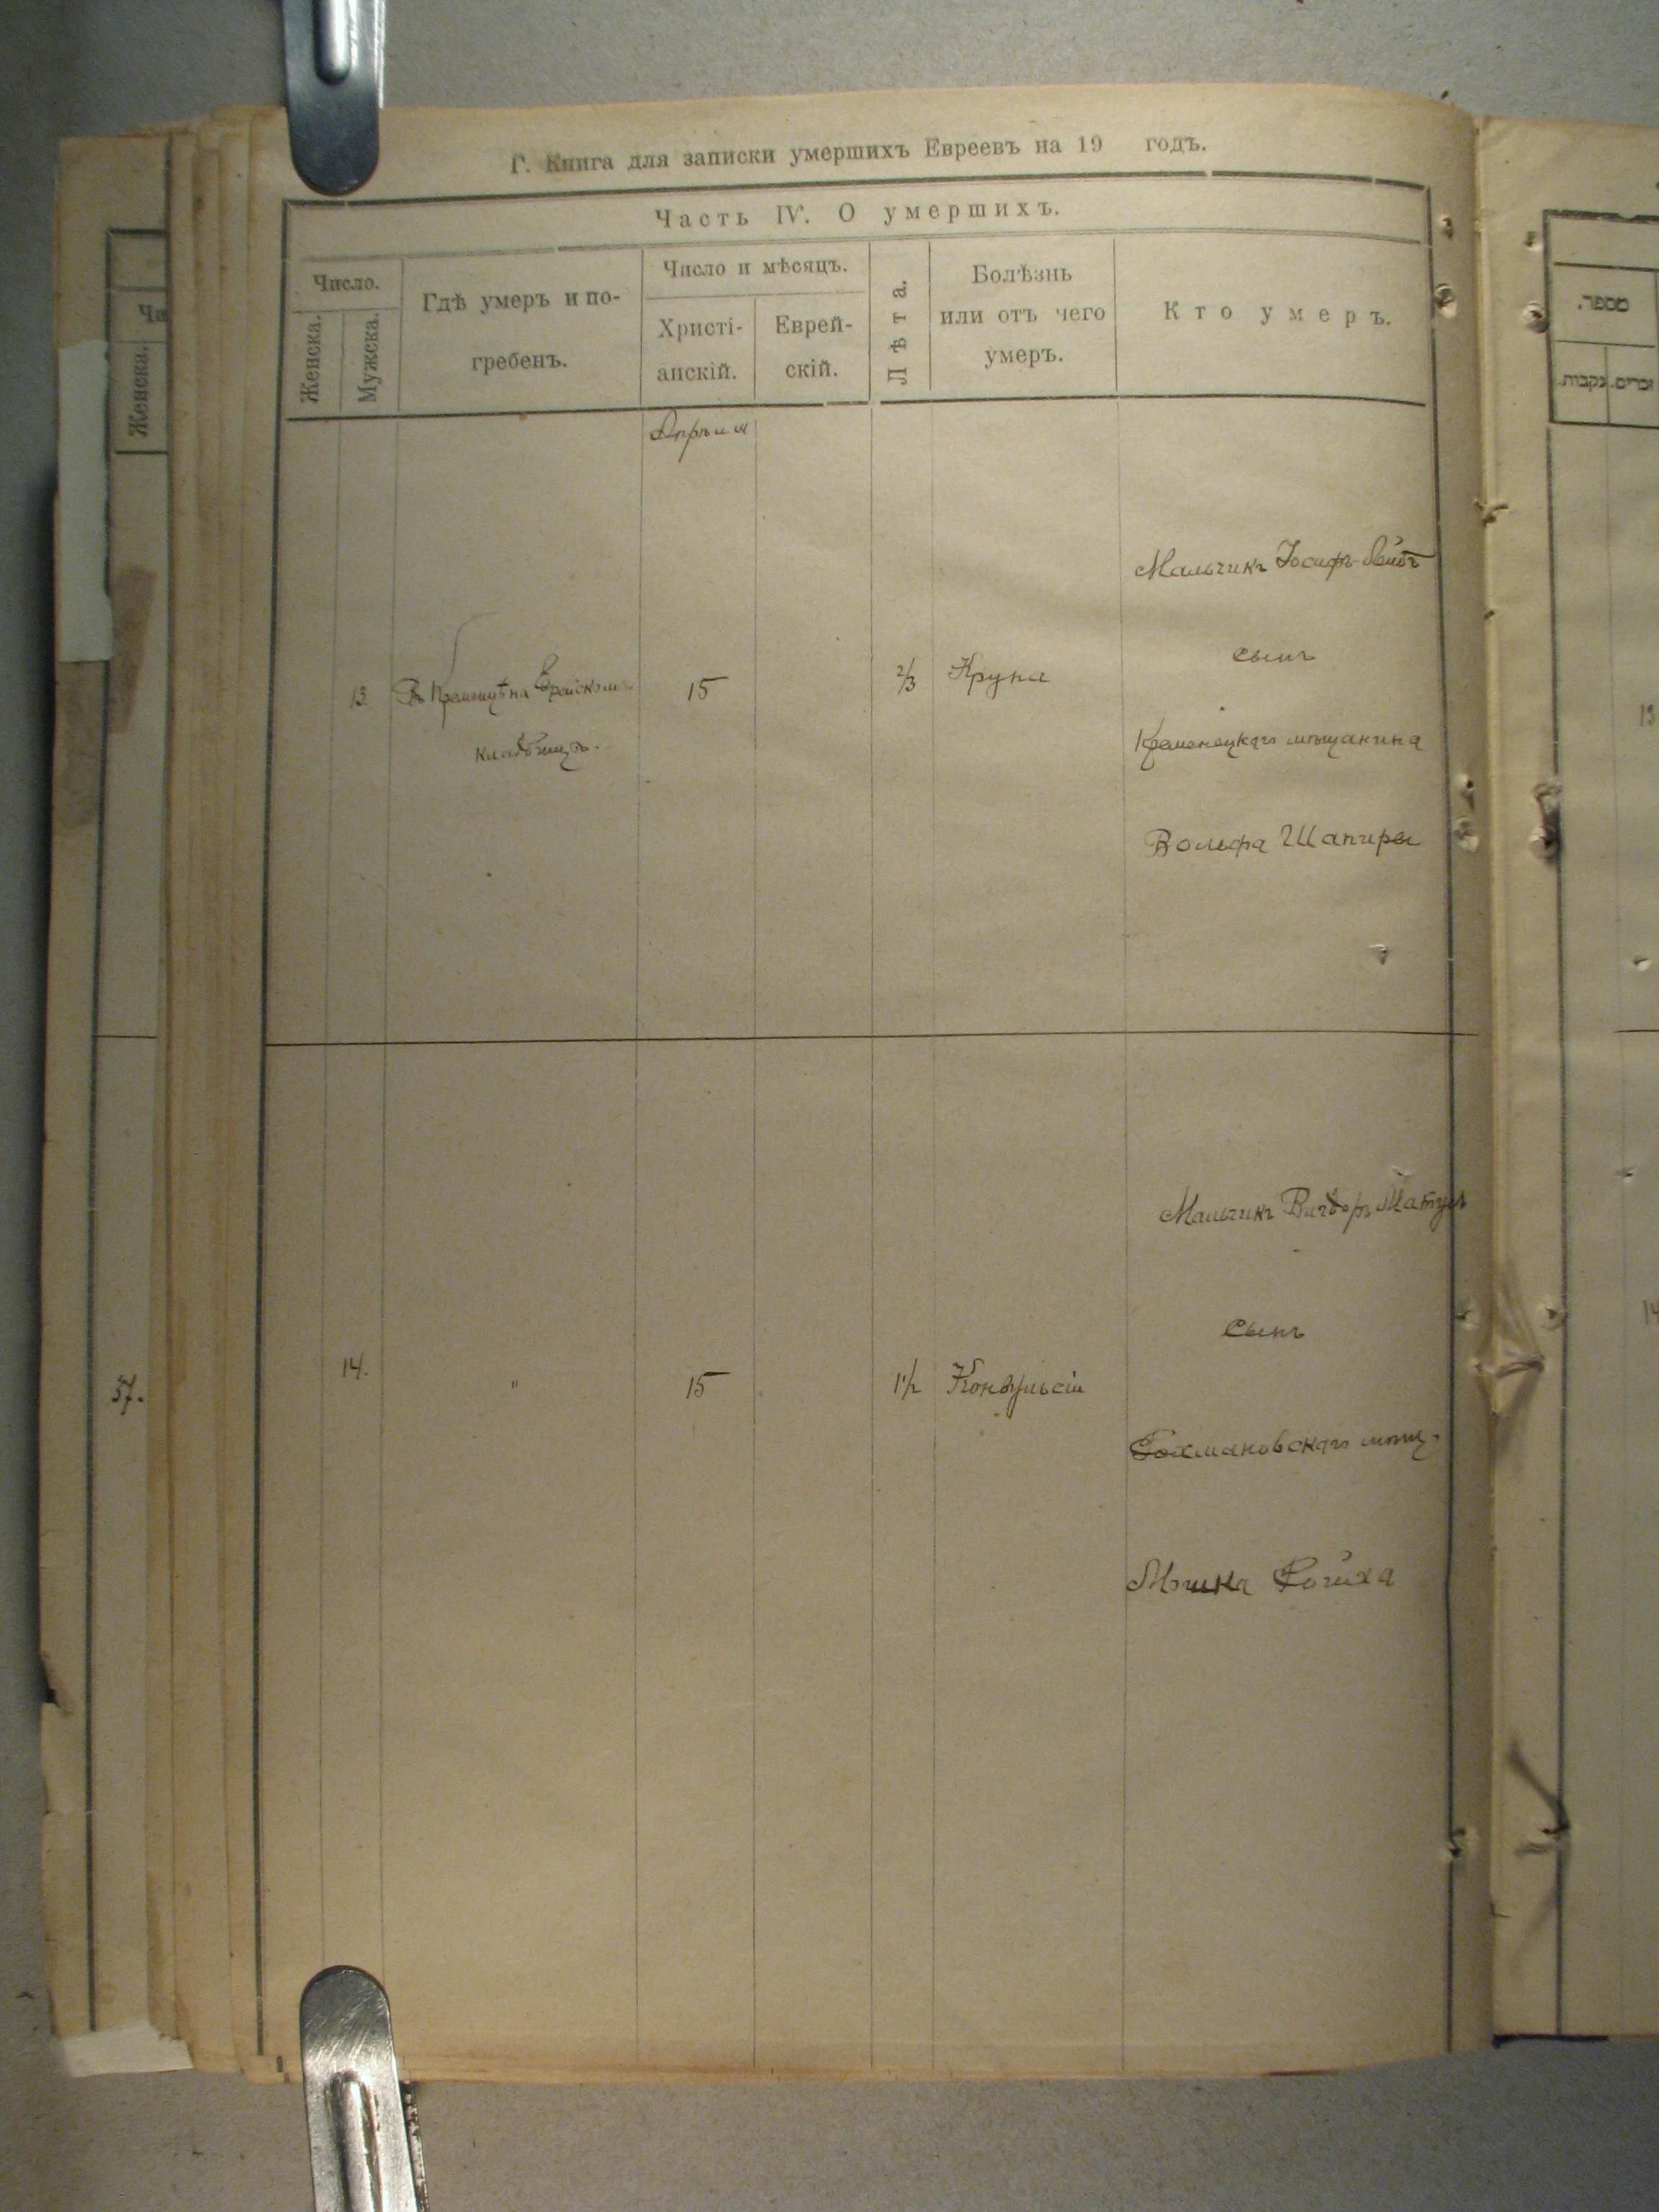 Г. Книга для записки умершихъ Евреевъ на 19 годъ.
Часть IV. О умершихъ.
Число.
Женска.
Мужска.
Гдѣ умеръ и по-
гребенъ.
Число и мѣсяцъ.
Христі-
анскій.
Еврей-
скій.
Лѣта.
Болѣзнь
или отъ чего
умеръ.
Кто умеръ.
Апрѣля
13
Въ Кременцѣ на Еврейскомъ
кладбищѣ.
15
2/3
Крупа
Мальчикъ Іосифъ-Лейбъ
сынъ
Кременецкаго мѣщанина
Вольфа Шапиры
14.
"
15
1 1/2
Конвульсіи
Мальчикъ Вигдоръ
сынъ
мѣщ.
Чи
Женска.
37.
מספר.
זכרים.
נקבות.
13
14